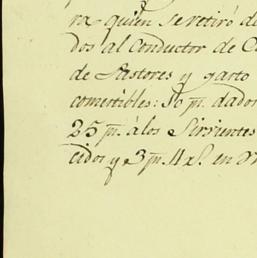 ra quien se retiró de
dos al Conductor de C
de Pastores y gasto
comestibles: 50 p.^ dados
25 p.^ á los Sirvientes
cidos y 3 p.^ 4 r.^ en